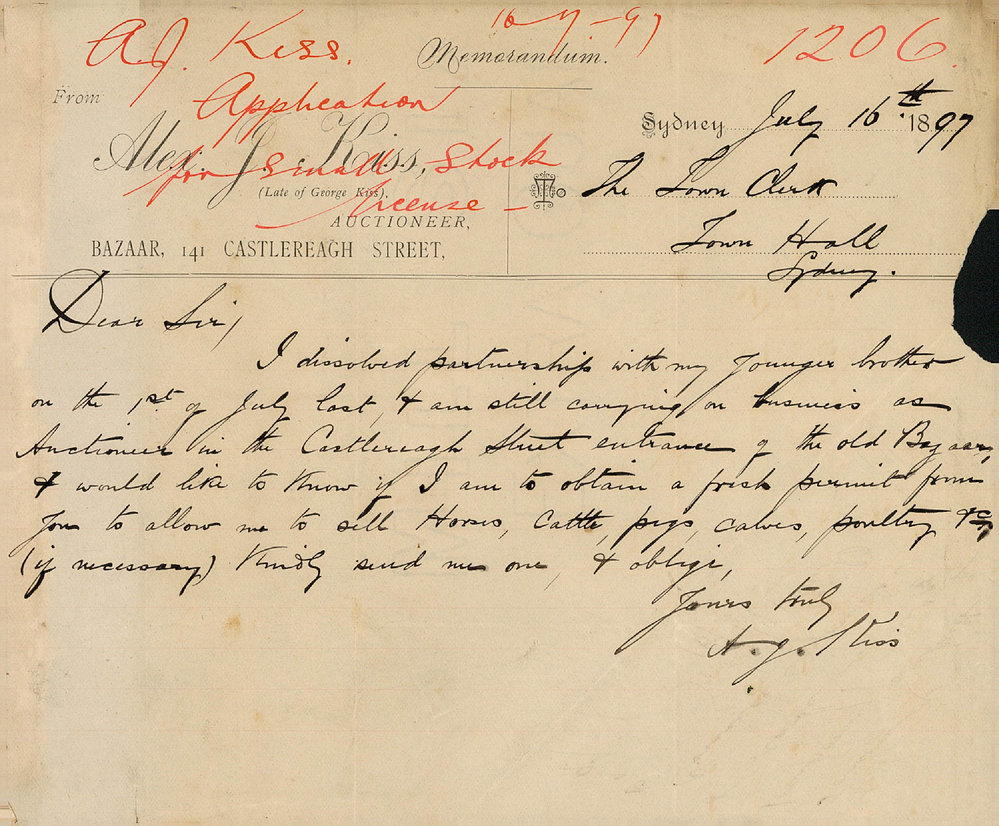 16-7-97
A.J. Kiss.
Memorandum.
1206.
From
Application
Alex. J. Kiss,
for Small Stock
(Late of George Kiss),
License -
AUCTIONEER,
BAZAAR, 141 CASTLEREAGH STREET,
Sydney July 16th 1897
The Town Clerk
Town Hall
Sydney.
Dear Sir,
I dissolved partnership with my younger brother
on the 1st of July last, & am still carrying on business as
Auctioneer in the Castlereagh Street entrance of the old Bazaar,
& would like to know if I am to obtain a fresh permit from
you to allow me to sell Horses, Cattle, pigs, calves, poultry &c,
(if necessary) Kindly send me one, & oblige,
Yours truly
A. J. Kiss